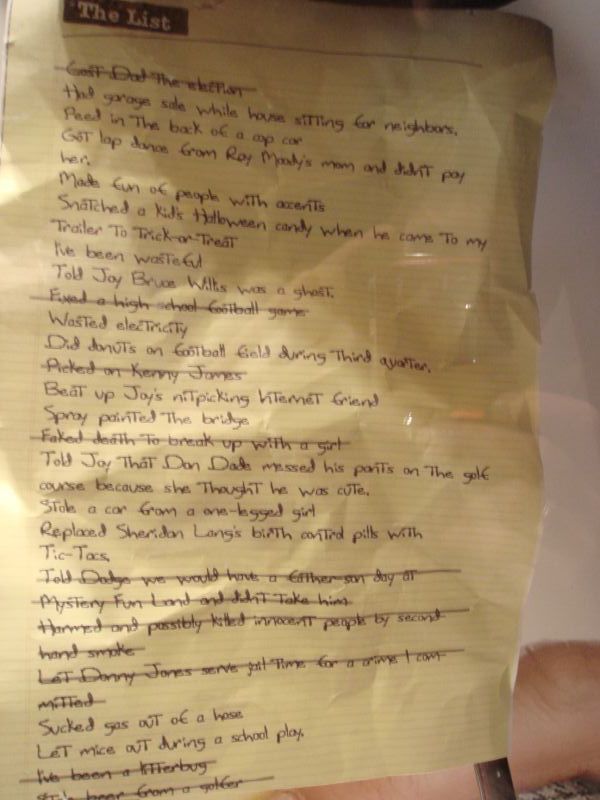 The List
Cost Dad The election
Had garage sale while house sitting for neighbors.
Peed in The back of a cop car
Got lap dance from Ray Moody's mom and didn't pay
her.
Made fun of people with accents
Snatched a kid's Halloween candy when he came To my
Trailer To Trick-or-Treat
I've been wasteful
Told Joy Bruce Willis was a ghost.
Fixed a high school football game
Wasted electricity
Did donuts on football field during Third quarter.
Picked on Kenny James
Beat up Joy's nitpicking Internet friend
Spray painted The bridge
Faked death To break up with a girl
Told Joy That Don Dade messed his pants on The golf
course because she Thought he was cute.
Stole a car from a one-legged girl
Replaced Sheridan Lang's birth control pills with
Tic-Tacs.
Told Dodge we would have a father-son day at
Mystery Fun Land and didn't Take him
Harmed and possibly killed innocent people by second
hand smoke
Let Donny Jones serve jail Time for a crime I com-
mitted
Sucked gas out of a hose
Let mice out during a school play.
I've been a litterbug
Stole beer from a golfer